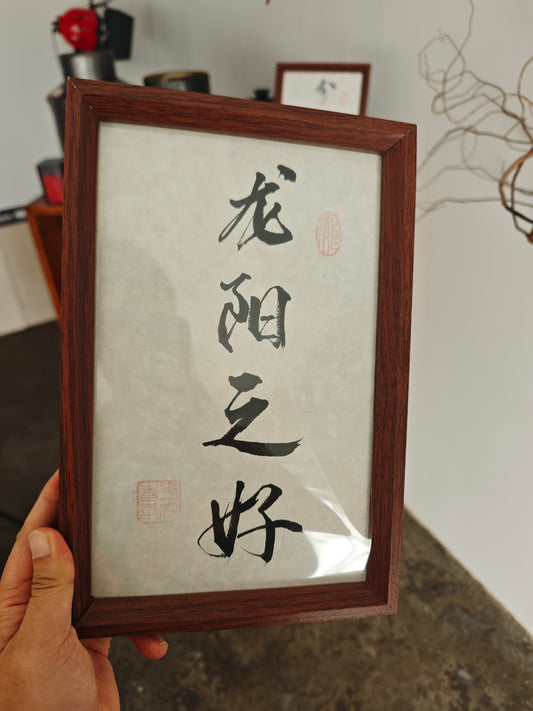 龙阳之好